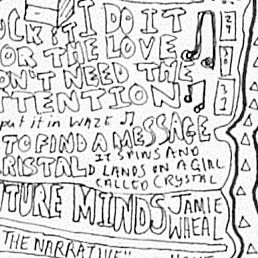 UCK IT I DO IT
FOR THE LOVE
DON'T NEED THE
ATTENTION
put it in WAZE
TO FIND A MESSAGE
CRISTAL IT SPINS AND
D LANDS ON A GIRL
CALLED CRYSTAL
TURE MINDS JAMIE
WHEAL
THE NARRATIVE"